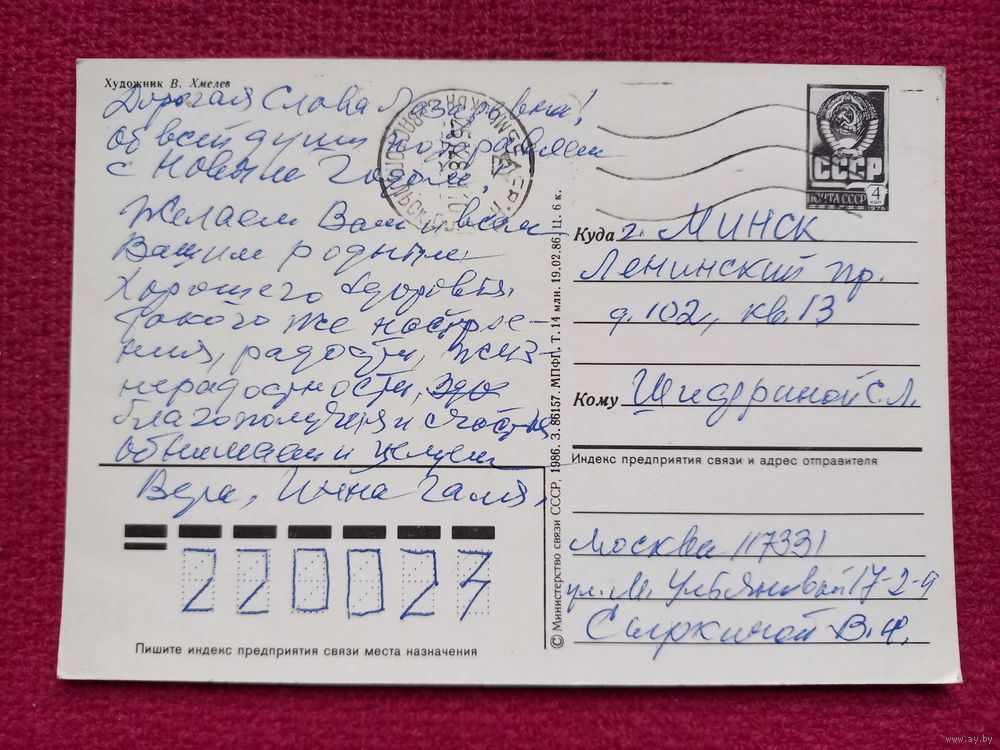 Художник В. Хмелев
Дорогая Слава Лазаревна!
от всей души поздравляем
с Новым Годом!
Желаем Вам и всем
Вашим родным
Хорошего здоровья,
такого же настрое-
ния, радости, жиз-
нерадостности,
благополучия и счастья
обнимаем и целуем
Вера, Инна Галя.
220027
Пишите индекс предприятия связи места назначения
© Министерство связи СССР, 1986. З. 86157. МПФГ. Т. 14 млн. 19.02.86. Ц. 6 к.
СССР
ПОЧТА СССР
4 коп
1976
Куда г. Минск
Ленинский пр.
д. 102, кв. 13
Кому С.Л.
Индекс предприятия связи и адрес отправителя
Москва 117331
ул. М. Ульяновой 17-2-9
В. Ф.
www.ay.by